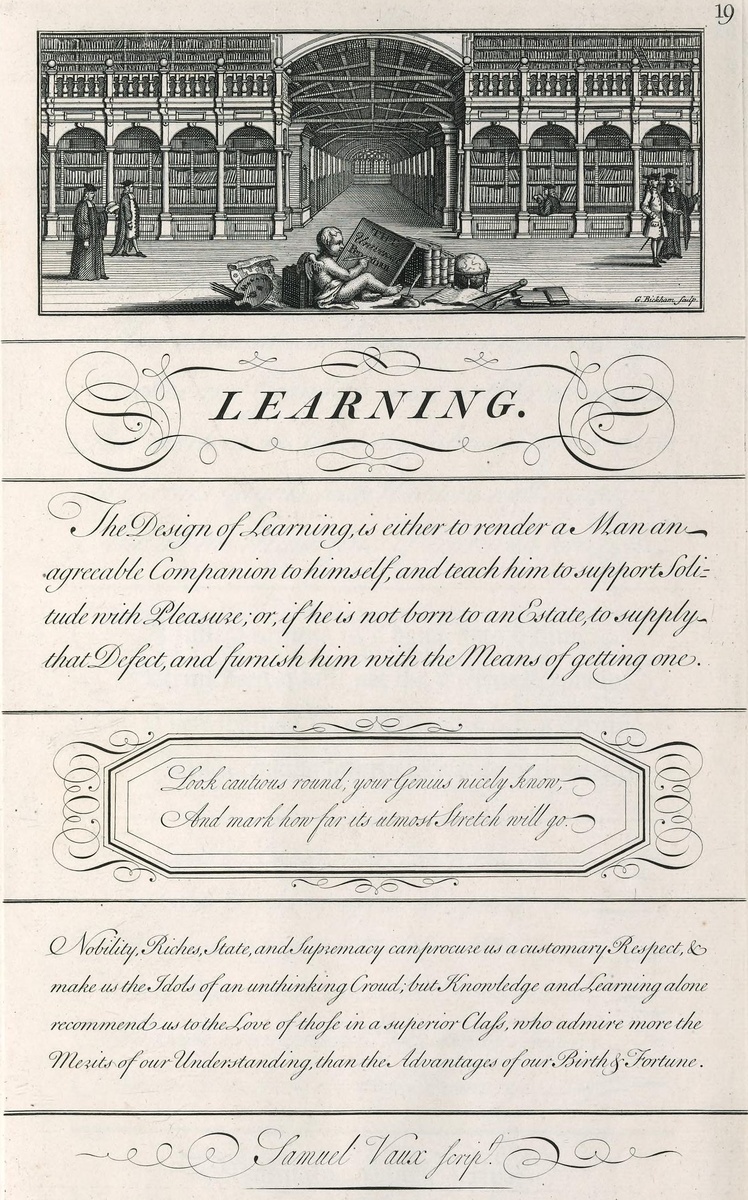 19
G. Bickham sculp.
LEARNING.
The Design of Learning, is either to render a Man an
agreeable Companion to himself, and teach him to support Soli=
tude with Pleasure; or, if he is not born to an Estate, to supply
that Defect, and furnish him with the Means of getting one.
Look cautious round; your Genius nicely know,
And mark how far its utmost Stretch will go.
Nobility, Riches, State, and Supremacy can procure us a customary Respect, &
make us the Idols of an unthinking Croud; but Knowledge and Learning alone
recommend us to the Love of those in a superior Class, who admire more the
Merits of our Understanding, than the Advantages of our Birth & Fortune.
Samuel Vaux scrip.t